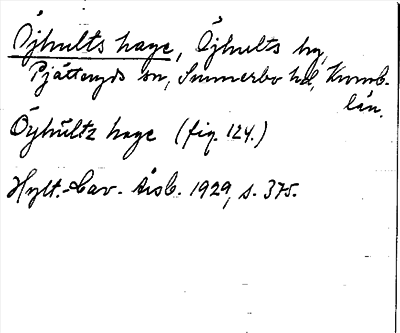 Öjhults hage, Öjhults by,
Pjätteryds sn, Sunnerbo hd, Kronob.
län.
Öyhultz hage (fig. 124.)
Hylt.-Cav. Årsb. 1929, s. 375.